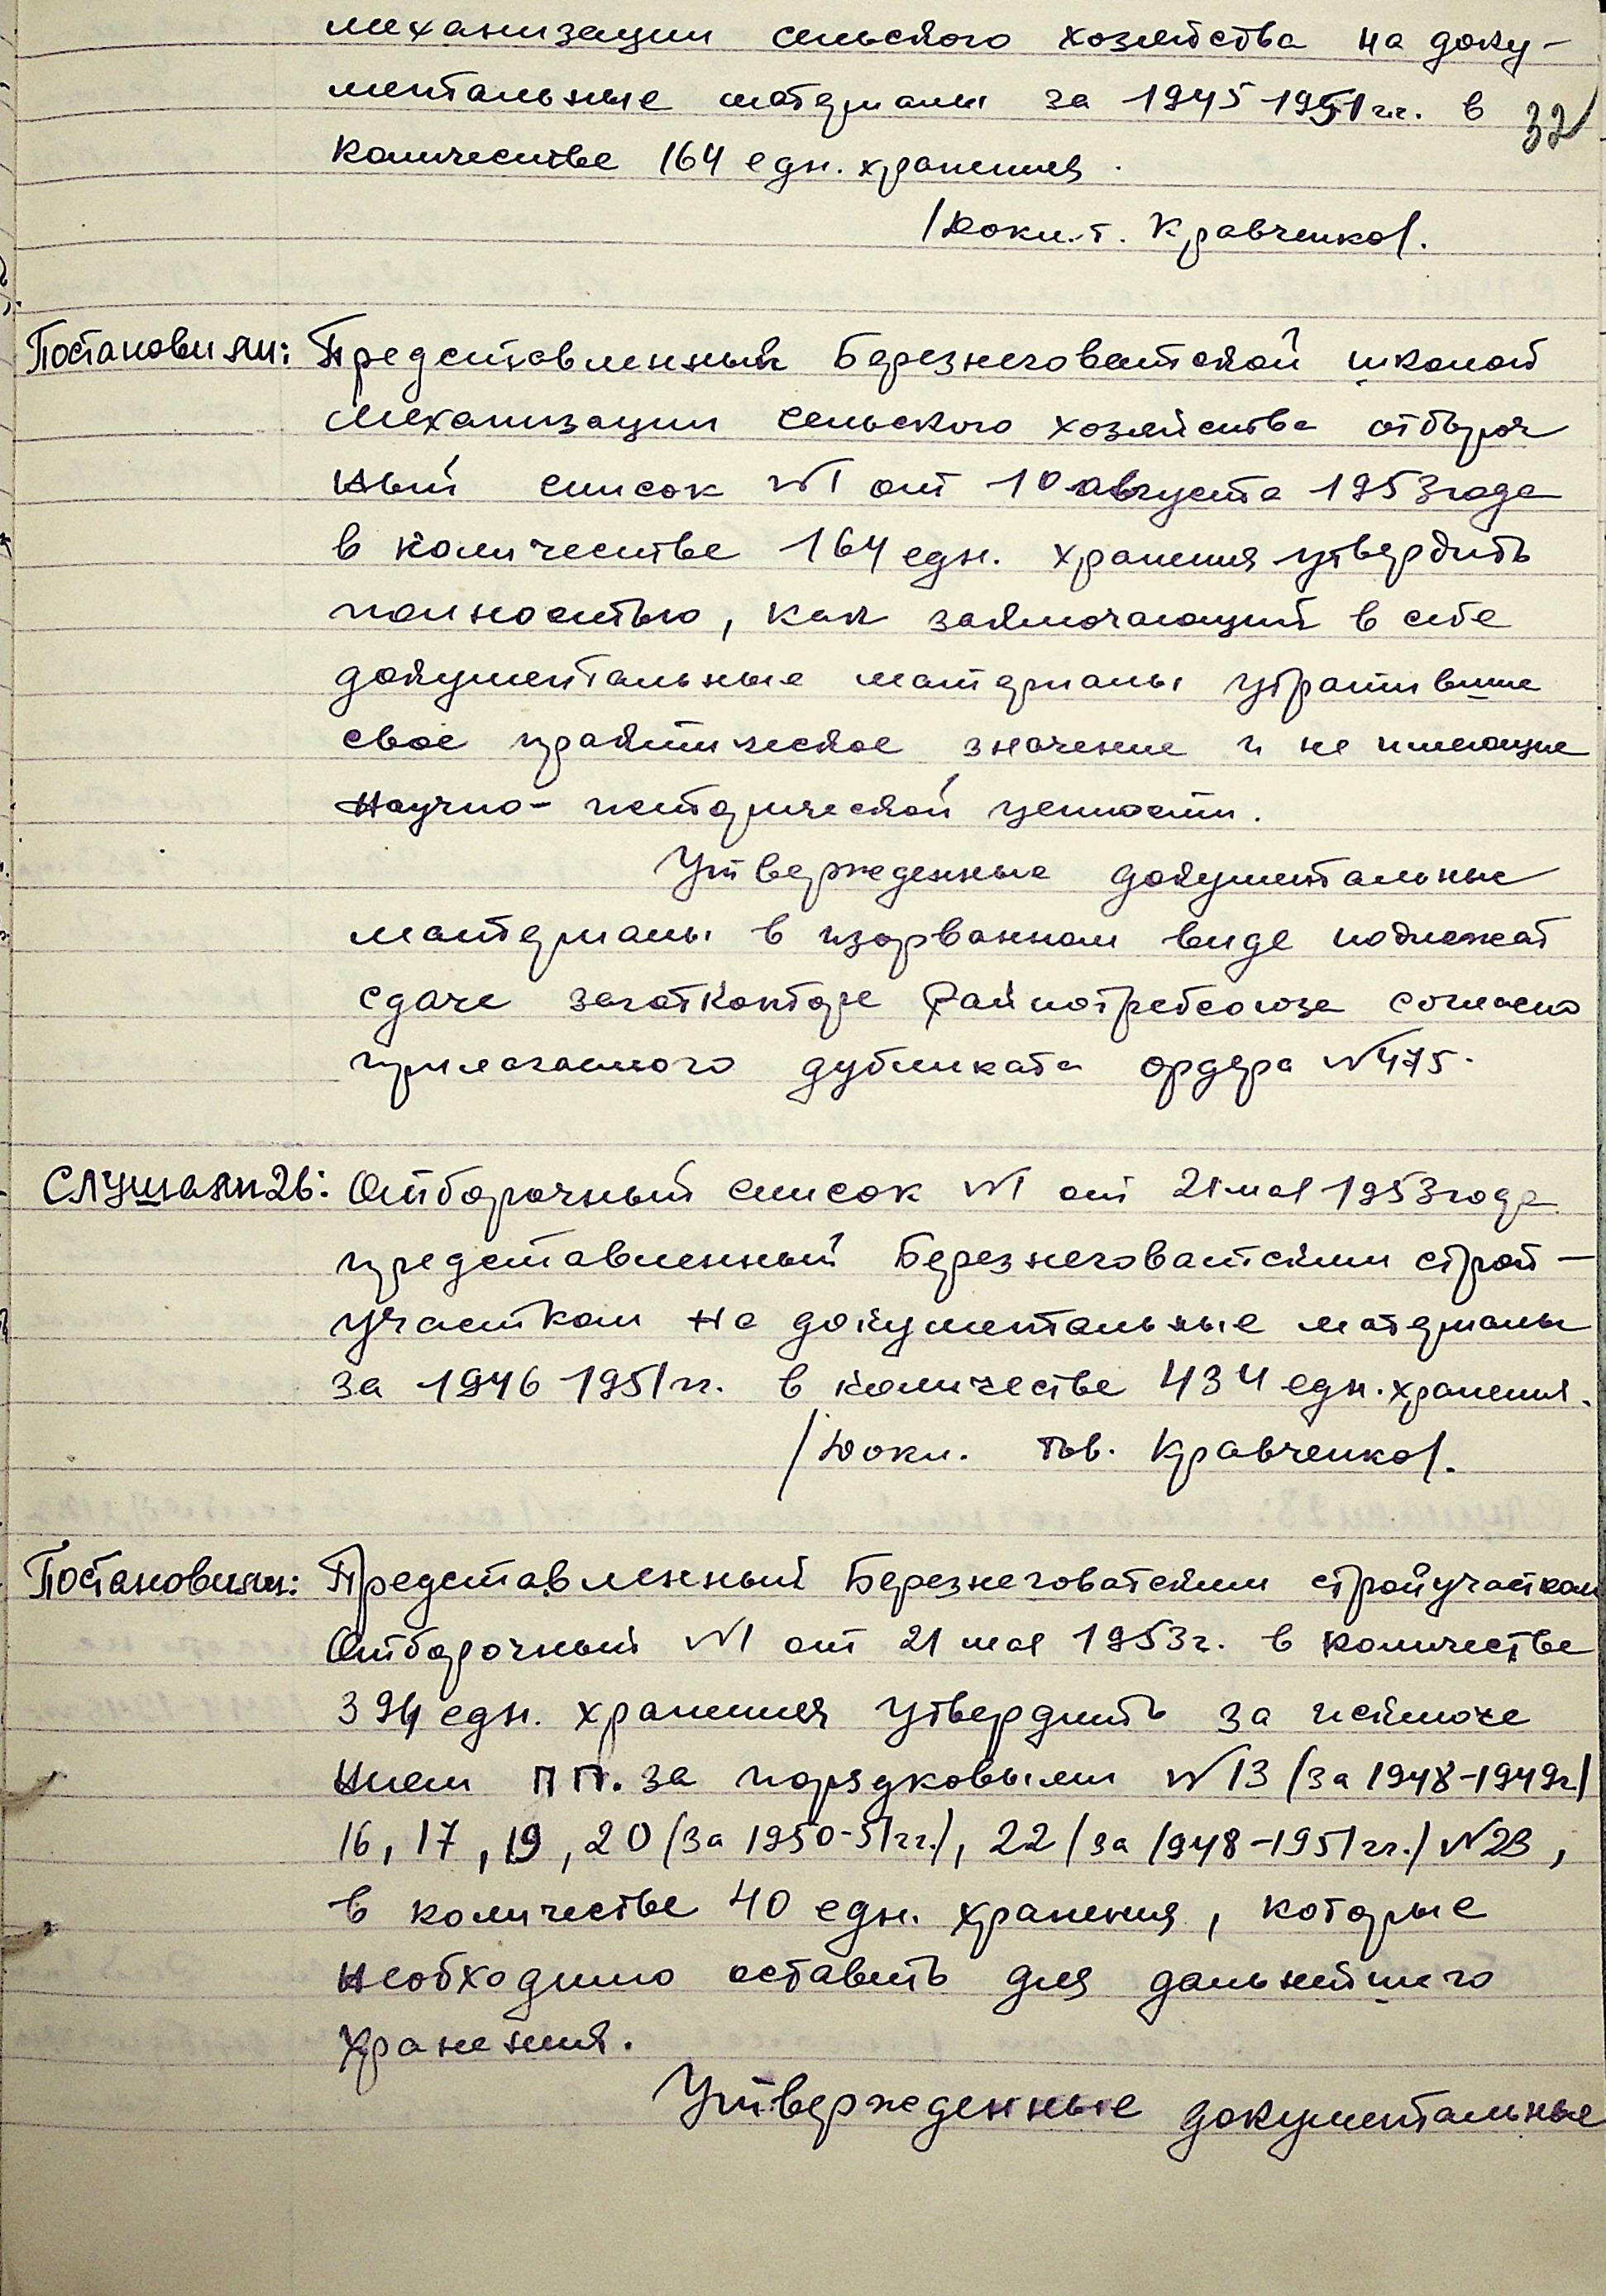 механизации сельского хозяйства на доку-
ментальные материалы за 1945 1951 гг. в
32
количестве 164 едн. хранения.
/Докл. т. Кравченко/.
Постановили: Представленный Березнеговатской школой
механизации сельского хозяйства отбороч
ный список №1 от 10 августа 1953 года
в количестве 164 едн. хранения утвердить
полностью, как заключающий в себе
документальные материалы утратившие
свое практическое значение и не имеющие
научно-исторической ценности.
Утвержденные документальные
материалы в изорванном виде подлежат
сдаче заготконторе Райпотребсоюза согласно
прилагаемого дубликата ордера №475.
Слушали 26: Отборочный список №1 от 21 мая 1953 года
представленный Березнеговатским строй-
участком на документальные материалы
за 1946 1951 гг. в количестве 434 едн. хранения.
/Докл. тов. Кравченко/.
Постановили: Представленный Березнеговатским стройучастком
Отборочный №1 от 21 мая 1953 г. в количестве
394 едн. хранения утвердить за исключе
нием пп. за порядковыми №13 /за 1948-1949г/
16, 17, 19, 20 /за 1950-51 гг./, 22 /за 1948-1951 гг./ №23,
в количестве 40 едн. хранения, которые
необходимо оставить для дальнейшего
хранения.
Утвержденные документальные